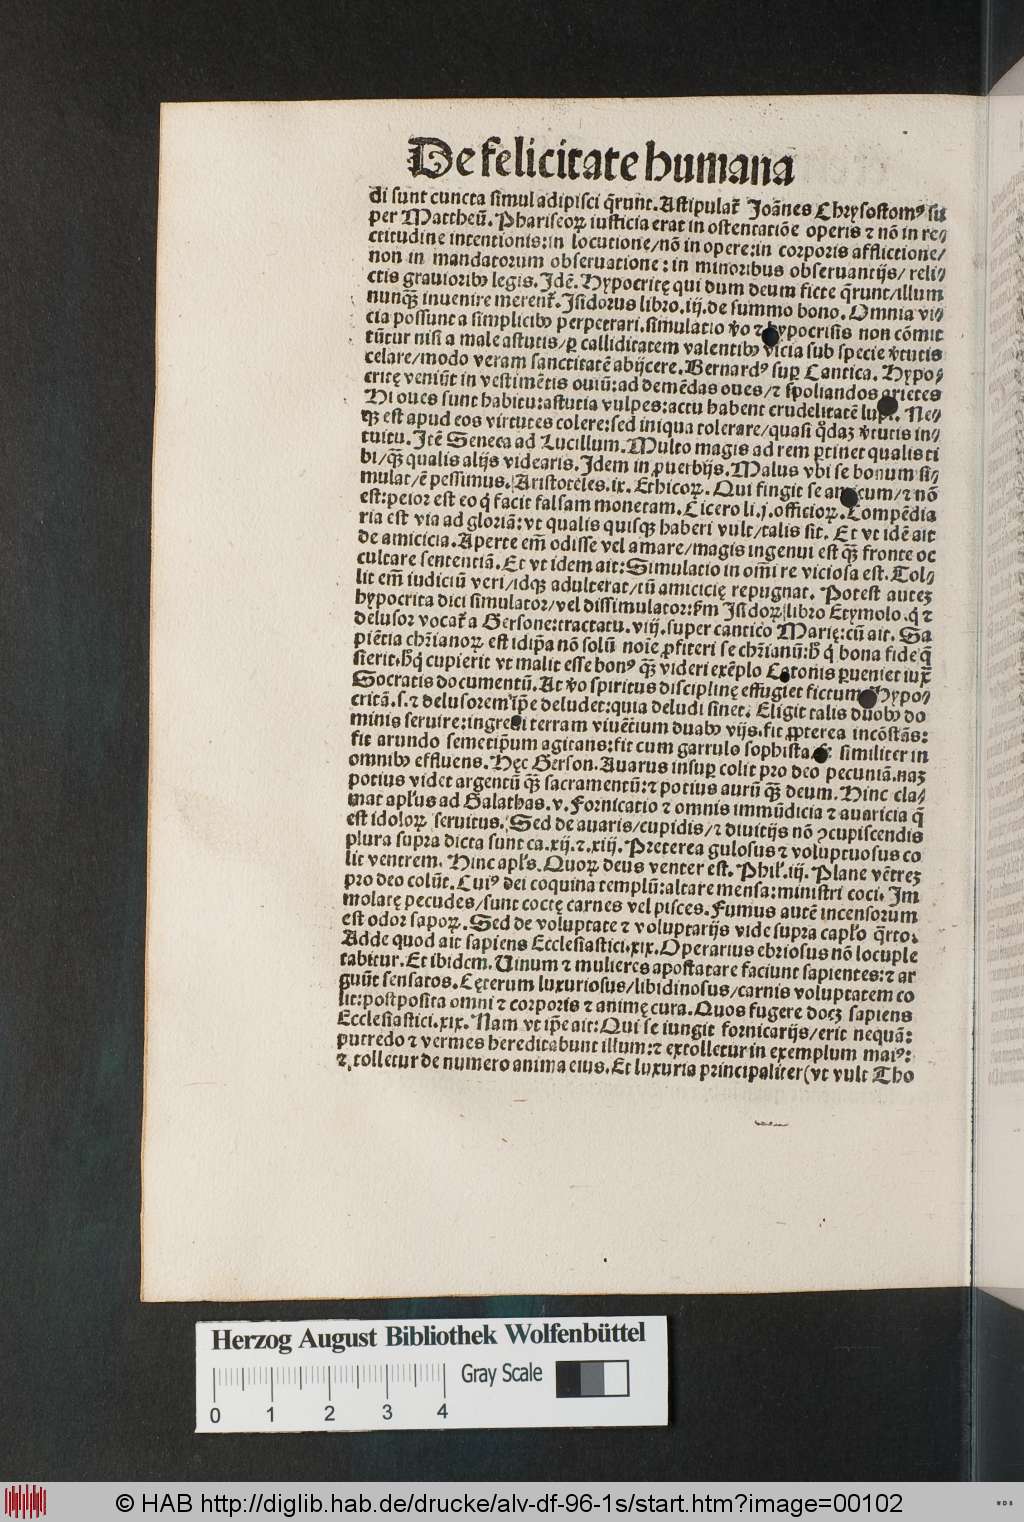 De felicitate humana
di sunt cuncta simul adipisci q̄runt. Astipulat᷒ Joānes Chrysostomꝰ su
per Mattheū. Phariseoꝝ iusticia erat in ostentatiōe operis ⁊ nō in re⸗
ctitudine intentionis: in locutione/ nō in opere: in corporis afflictione/
non in mandatorum obseruatione: in minoribus obseruantijs/ reli⸗
ctis grauiorib⁹ legis. Idē. Hypocritę qui dum deum ficte q̄runt/ illum
nunqꝫ inuenire merent᷒. Isidorus libro .iij. de summo bono. Omnia vi⸗
cia possunt a simplicib⁹ perpetrari. simulatio v̾o ⁊ hypocrisis non cōmit
tūtur nisi a male astutis/ ꝑ calliditatem valentib⁹ vicia sub specie v̾tutis
celare/ modo veram sanctitatē abijcere. Bernardꝰ suꝑ Cantica. Hypo⸗
critę veniūt in vestimētis ouiū: ad demēdas oues/ ⁊ spoliandos arietes
Hi oues sunt habitu: astutia vulpes: actu habent crudelitatē lupi. Ne⸗
qꝫ est apud eos virtutes colere: sed iniqua tolerare/ quasi q̊daꝫ v̾tutis in⸗
tuitu. Itē Seneca ad Lucillum. Multo magis ad rem ꝑtinet qualis ti
bi/ qꝫ qualis alijs videaris. Idem in ꝓuerbijs. Malus vbi se bonum si⸗
mulat/ ē pessimus. Aristoteles .ix. Ethicoꝝ. Qui fingit se amicum/ ⁊ nō
est: peior est eo q̇ facit falsam monetam. Cicero li. j. officioꝝ. Compēdia
ria est via ad gloriā: vt qualis quisqꝫ haberi vult/ talis sit. Et vt idē ait
de amicicia. Aperte em̄ odisse vel amare/ magis ingenui est qꝫ fronte oc
cultare sententiā. Et vt idem ait: Simulatio in om̄i re viciosa est. Tol⸗
lit em̄ iudiciū veri/ idqꝫ adulterat/ tū amicicię repugnat. Potest auteꝫ
hypocrita dici simulator/ vel dissimulator: ẜm Isidoꝝ libro Etymolo. q̇ ⁊
delusor vocat᷒ a Gersone: tractatu. viij. super cantico Marię: cū ait. Sa
piētia chr̄ianoꝝ est idip̄a nō solū noīe ꝓfiteri se chr̄ianū: ħ q̇ bona fide q̄
sierit. hꝗ cupierit vt malit esse bonꝰ qꝫ videri exēplo Catonis ꝑueniet iux̄
Socratis documentū. At v̾o spiritus disciplinę effugiet fictum Hypo⸗
critā .s. ⁊ delusorem ip̄e deludet: quia deludi sinet. Eligit talis duob⁹ do
minis seruire: ingredi terram viuētium duab⁹ vijs. fit ꝓpterea incōstās:
fit arundo semetip̄um agitans: fit cum garrulo sophista. & similiter in
omnib⁹ effluens. Hęc Gerson. Auarus insuꝑ colit pro deo pecuniā. naꝫ
potius videt argentū qꝫ sacramentū: ⁊ potius aurū qꝫ deum. Hinc cla⸗
mat apl̄us ad Galathas. v. Fornicatio ⁊ omnis immūdicia ⁊ auaricia q̄
est idoloꝝ seruitus. Sed de auaris/ cupidis/ ⁊ diuitijs nō ꝯcupiscendis
plura supra dicta sunt ca. xij. ⁊. xiij. Preterea gulosus ⁊ voluptuosus co
lit ventrem. Hinc apl̄s. Quoꝝ deus venter est. Phil̄. iij. Plane vētreꝫ
pro deo colūt. Cuiꝰ dei coquina templū: altare mensa: ministri coci. Im
molatę pecudes/ sunt coctę carnes vel pisces. Fumus autē incensorum
est odor sapoꝝ. Sed de voluptate ⁊ voluptarijs vide supra capl̄o q̄rto.
Adde quod ait sapiens Ecclesiastici. xix. Operarius ebriosus nō locuple
tabitur. Et ibidem. Uinum ⁊ mulieres apostatare faciunt sapientes: ⁊ ar
guūt sensatos. Cęterum luxuriosus/ libidinosus/ carnis voluptatem co
lit: postposita omni ⁊ corporis ⁊ animę cura. Quos fugere docꝫ sapiens
Ecclesiastici. xix. Nam vt ip̄e ait: Qui se iungit fornicarijs/ erit nequā:
putredo ⁊ vermes hereditabunt illum: ⁊ extolletur in exemplum maiꝰ:
⁊ tolletur de numero anima eius. Et luxuria principaliter (vt vult Tho
Herzog August Bibliothek Wolfenbüttel
Gray Scale
0 1 2 3 4
© HAB http://diglib.hab.de/drucke/alv-df-96-1s/start.htm?image=00102